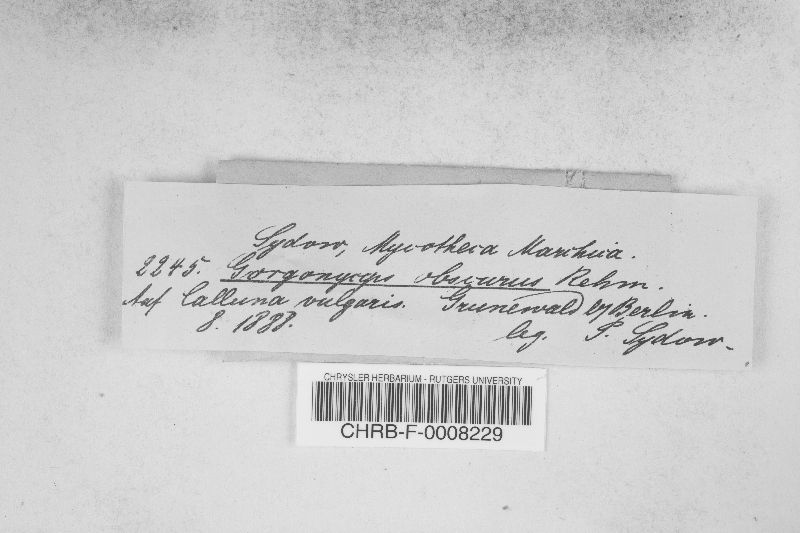 Sydow, Mycotheca Marchica.
2245. Gorgoniceps obscurus Rehm.
Auf Calluna vulgaris. Grunewald b/Berlin.
8. 1888. leg. P. Sydow.
CHRYSLER HERBARIUM - RUTGERS UNIVERSITY
CHRB-F-0008229